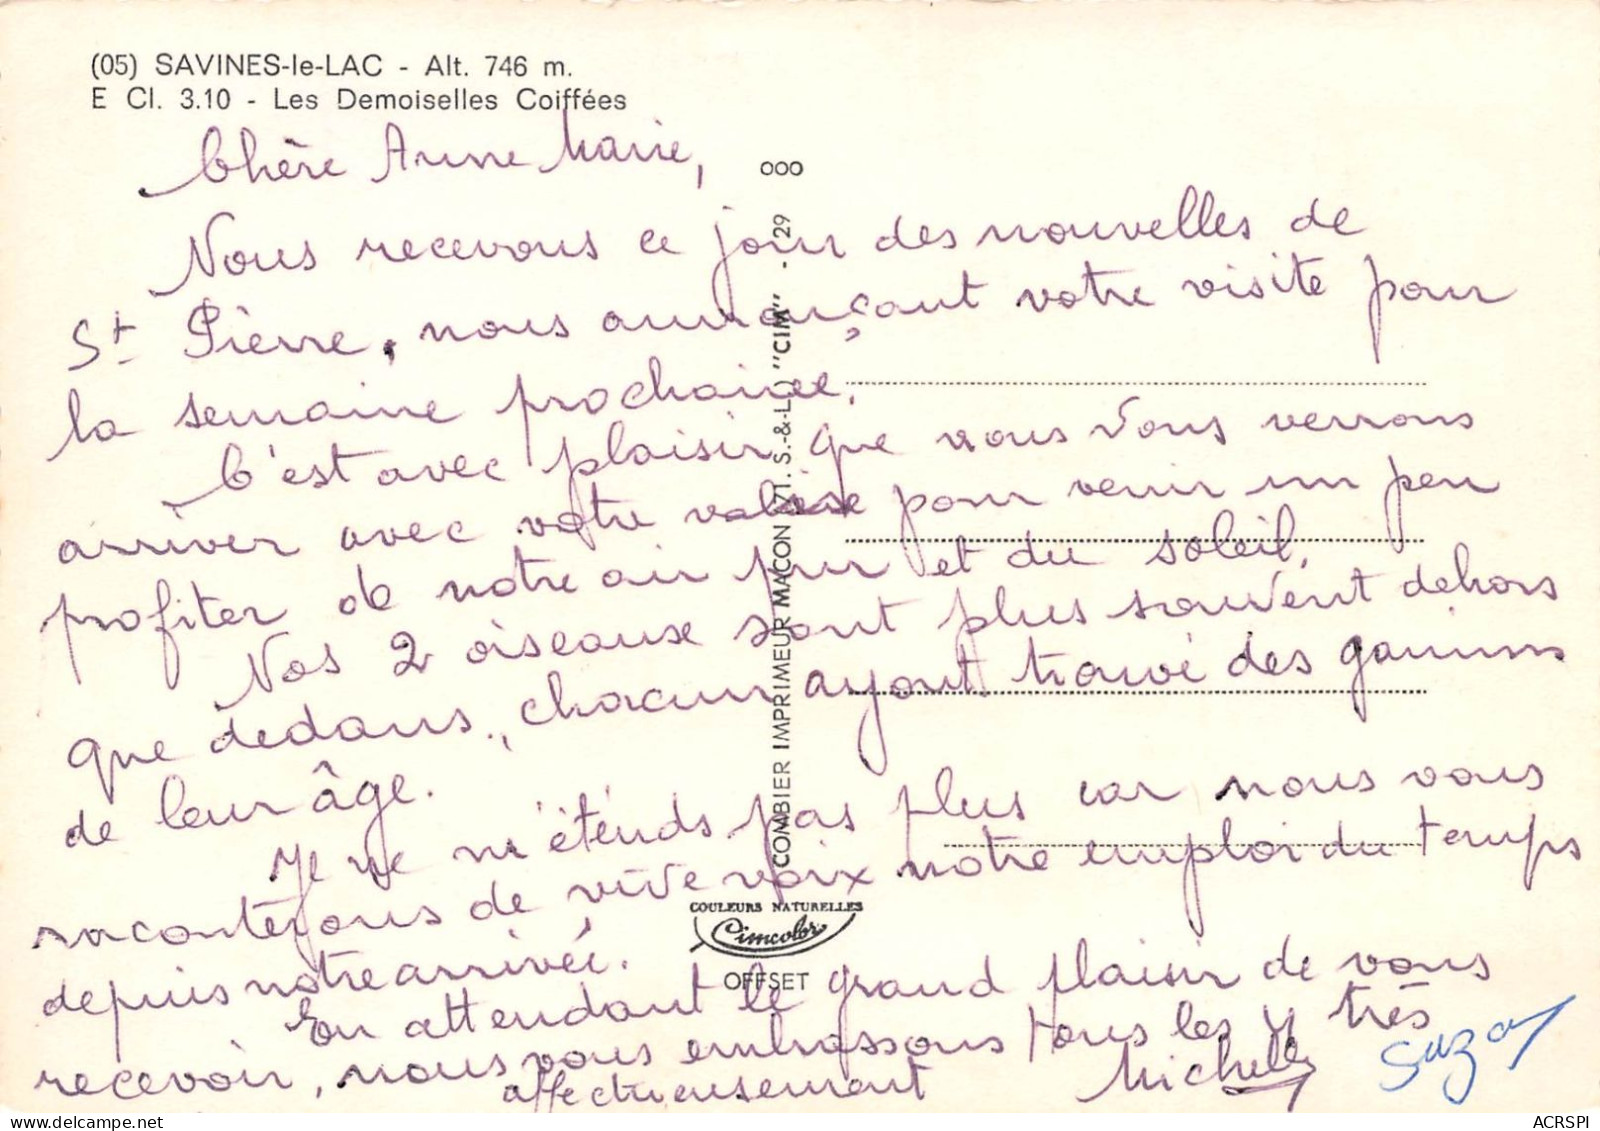 (05) SAVINES-le-LAC - Alt. 746 m.
E Cl. 3.10 - Les Demoiselles Coiffées
Chère Anne Marie,
Nous recevons ce jour des nouvelles de
St Pierre, nous annonçant votre visite pour
la semaine prochaine.
C'est avec plaisir que nous vous verrons
arriver avec votre valise pour venir un peu
profiter de notre air pur et du soleil.
Nos 2 oiseaux sont plus souvent dehors
que dedans, chacun ayant trouvé des gamins
de leur âge.
Je ne m'étends pas plus car nous vous
raconterons de vive voix notre emploi du temps
depuis notre arrivée.
En attendant le grand plaisir de vous
recevoir, nous vous embrassons tous les 4 très
affectueusement
Michelle
Suzon
ooo
COMBIER IMPRIMEUR MACON (71. S.-&-L.) "CIM" - 29
COULEURS NATURELLES
Cimcolor
OFFSET
ACRSPI